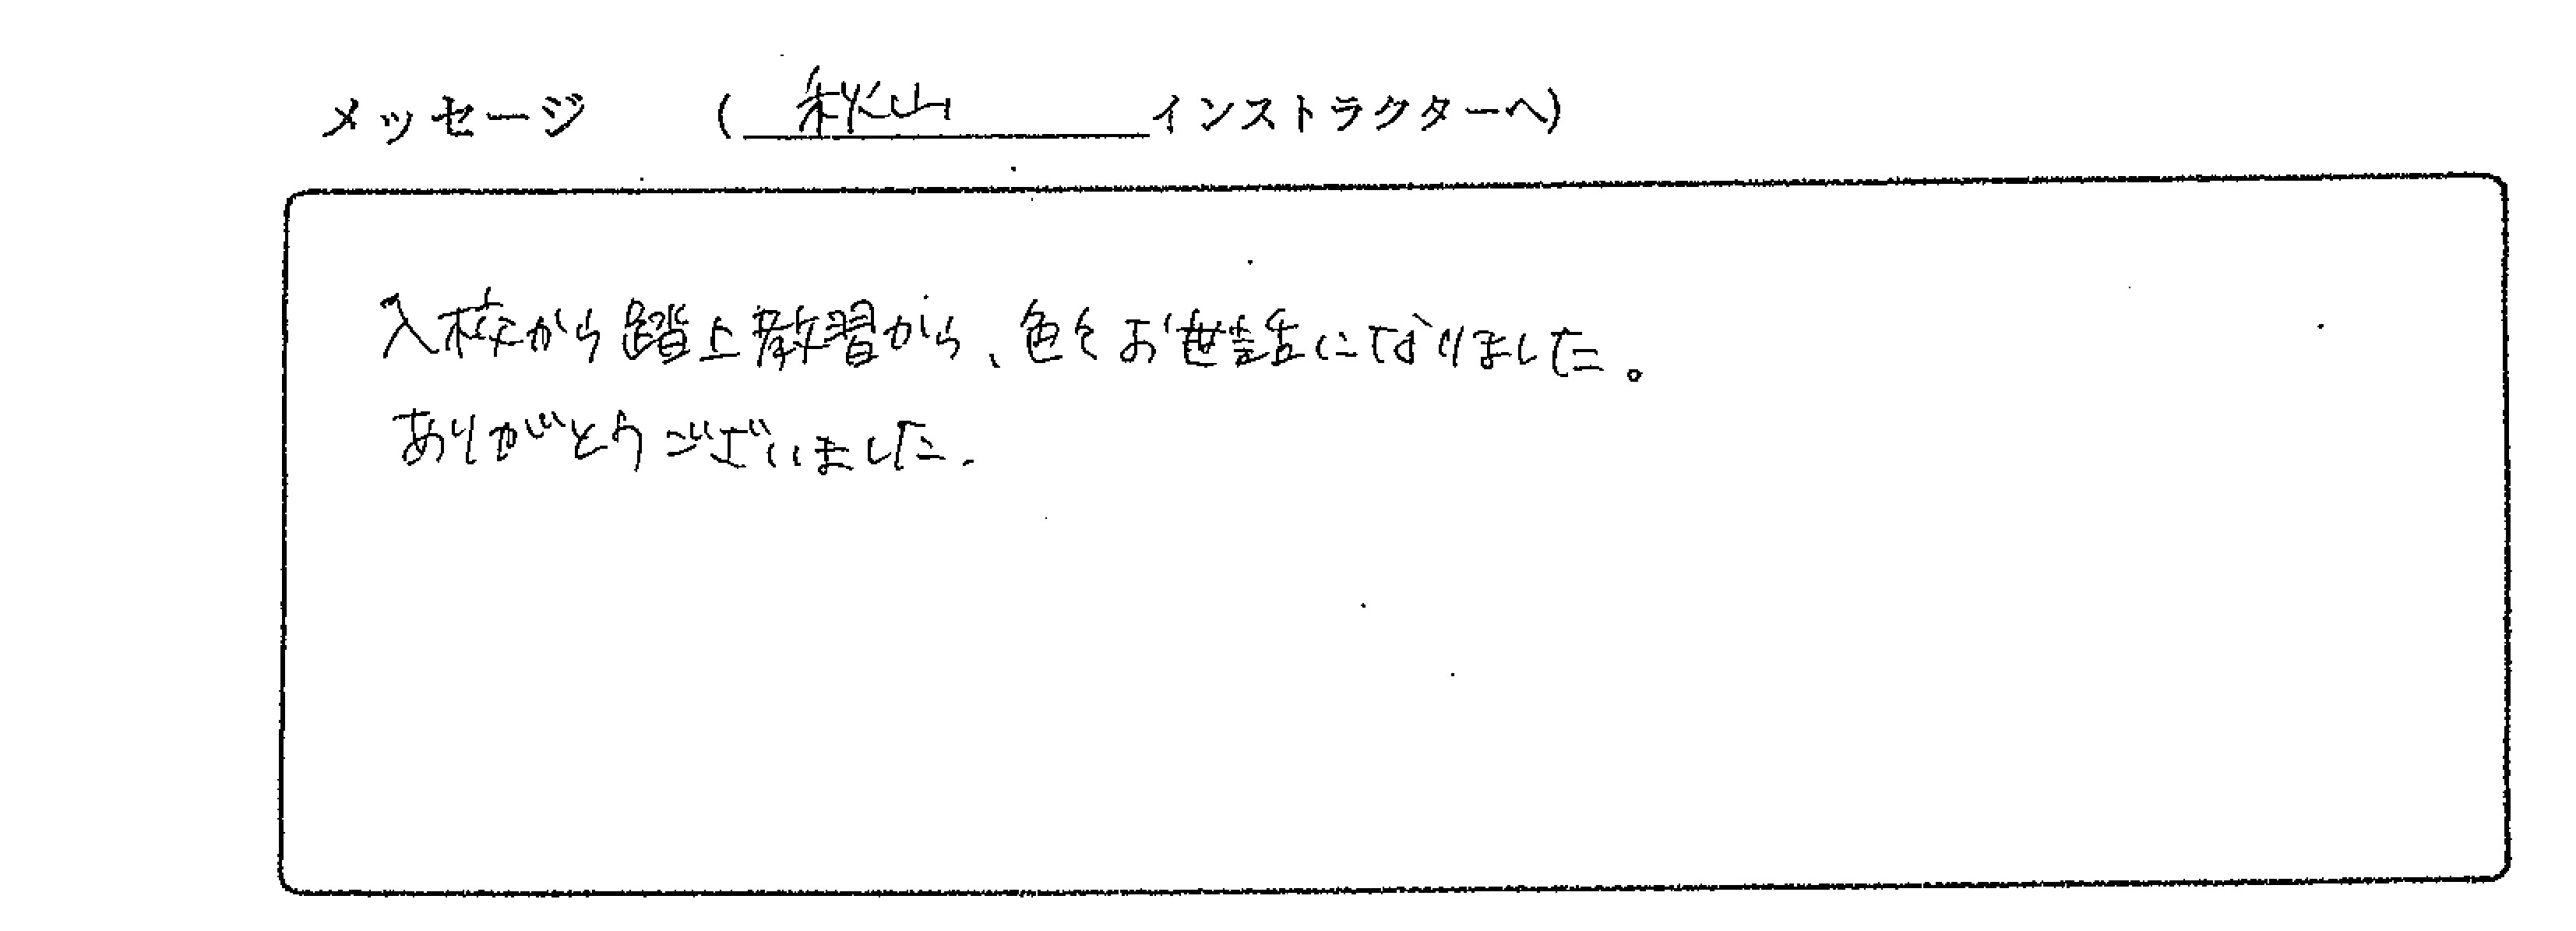 メッセージ (秋山インストラクターへ)
入校から踏上教習から、色々お世話になりました。
ありがとうございました.